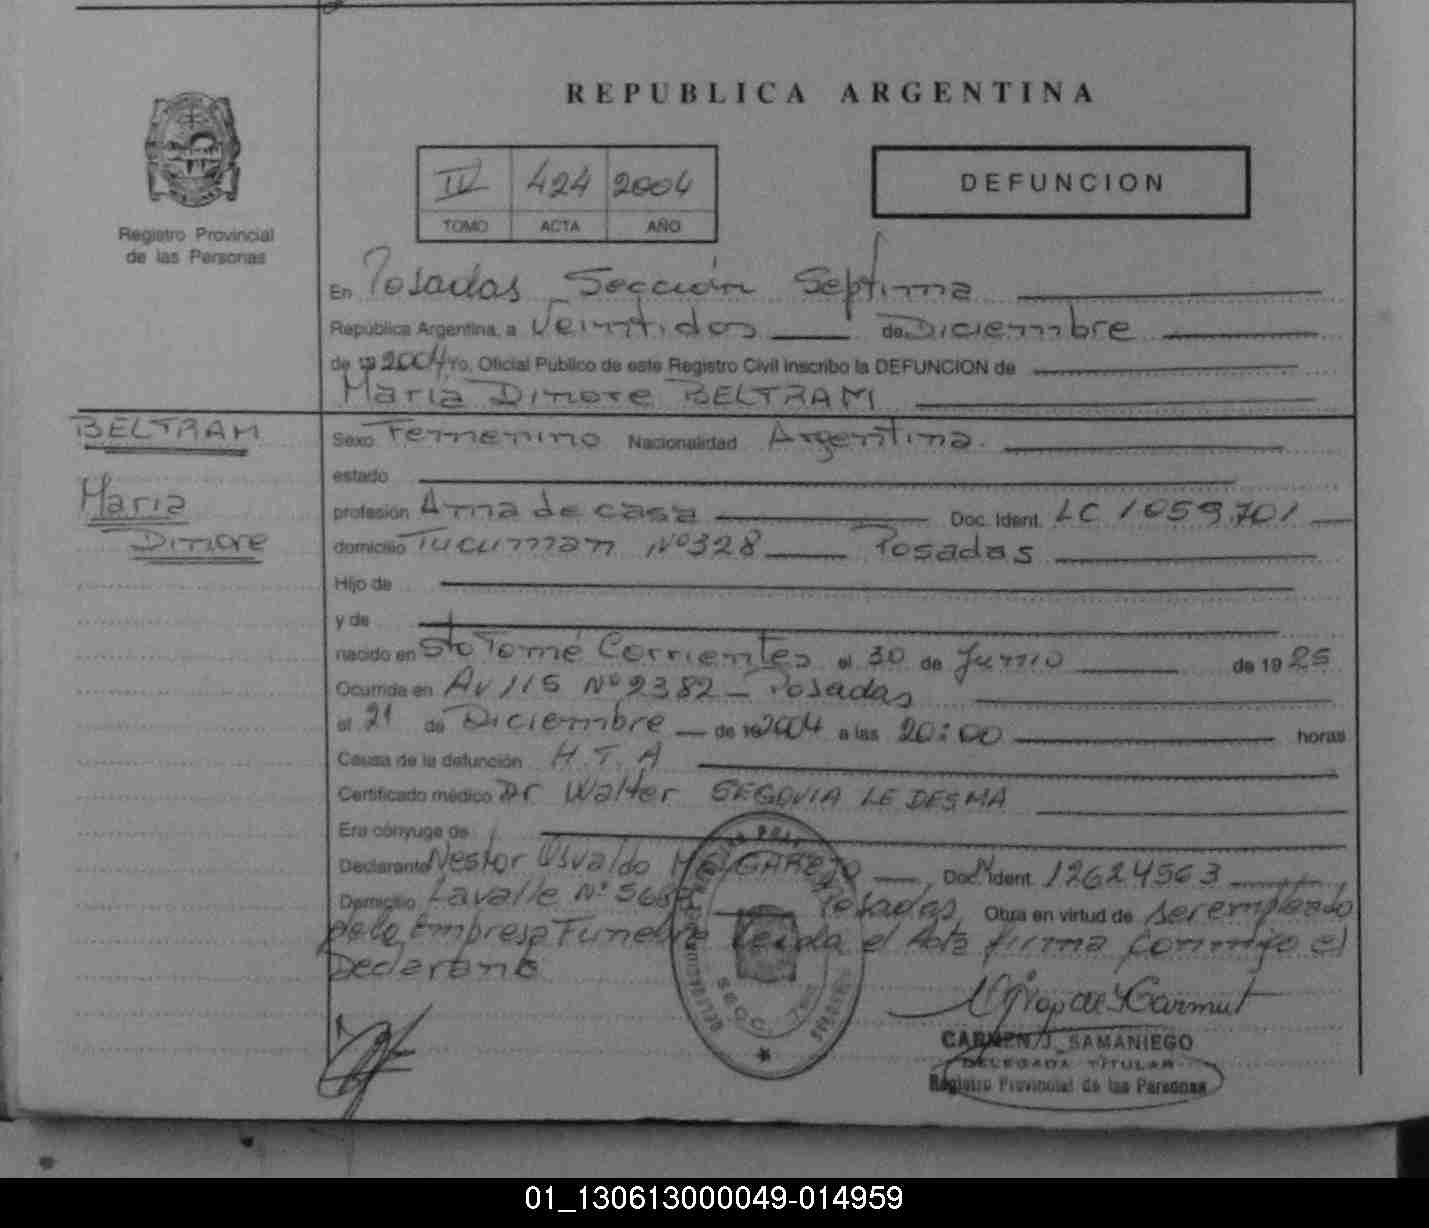 REPUBLICA ARGENTINA
IV 424 2004
TOMO ACTA AÑO
DEFUNCION
Registro Provincial
de las Personas
En Posadas Sección Septima
República Argentina, a Veintidos de Diciembre
de 19 2004 Yo, Oficial Público de este Registro Civil inscribo la DEFUNCION de
Maria Dinore BELTRAM
BELTRAM
Maria
Dinore
Sexo Femenino Nacionalidad Argentina
estado
profesión Ama de casa Doc. Ident. LC 1059.701
domicilio Tucuman Nº 328 Posadas
Hijo de
y de
nacido en Sto Tomé Corrientes el 30 de Junio de 19 25
Ocurrida en Av 115 Nº 2382 - Posadas
el 21 de Diciembre de 19 2004 a las 20:00 horas
Causa de la defunción H.T.A
Certificado médico Dr Walter SEGOVIA LEDESMA
Era cónyuge de
Declarante Nestor Osvaldo MELGAREJO Doc. Ident. 12624563
Domicilio Lavalle Nº Posadas Obra en virtud de ser empleado
de la Empresa Funebre Leida el Acta firma conmigo el
Declarante
SECC.
CARMEN J. SAMANIEGO
DELEGADA TITULAR
Registro Provincial de las Personas
01_130613000049-014959